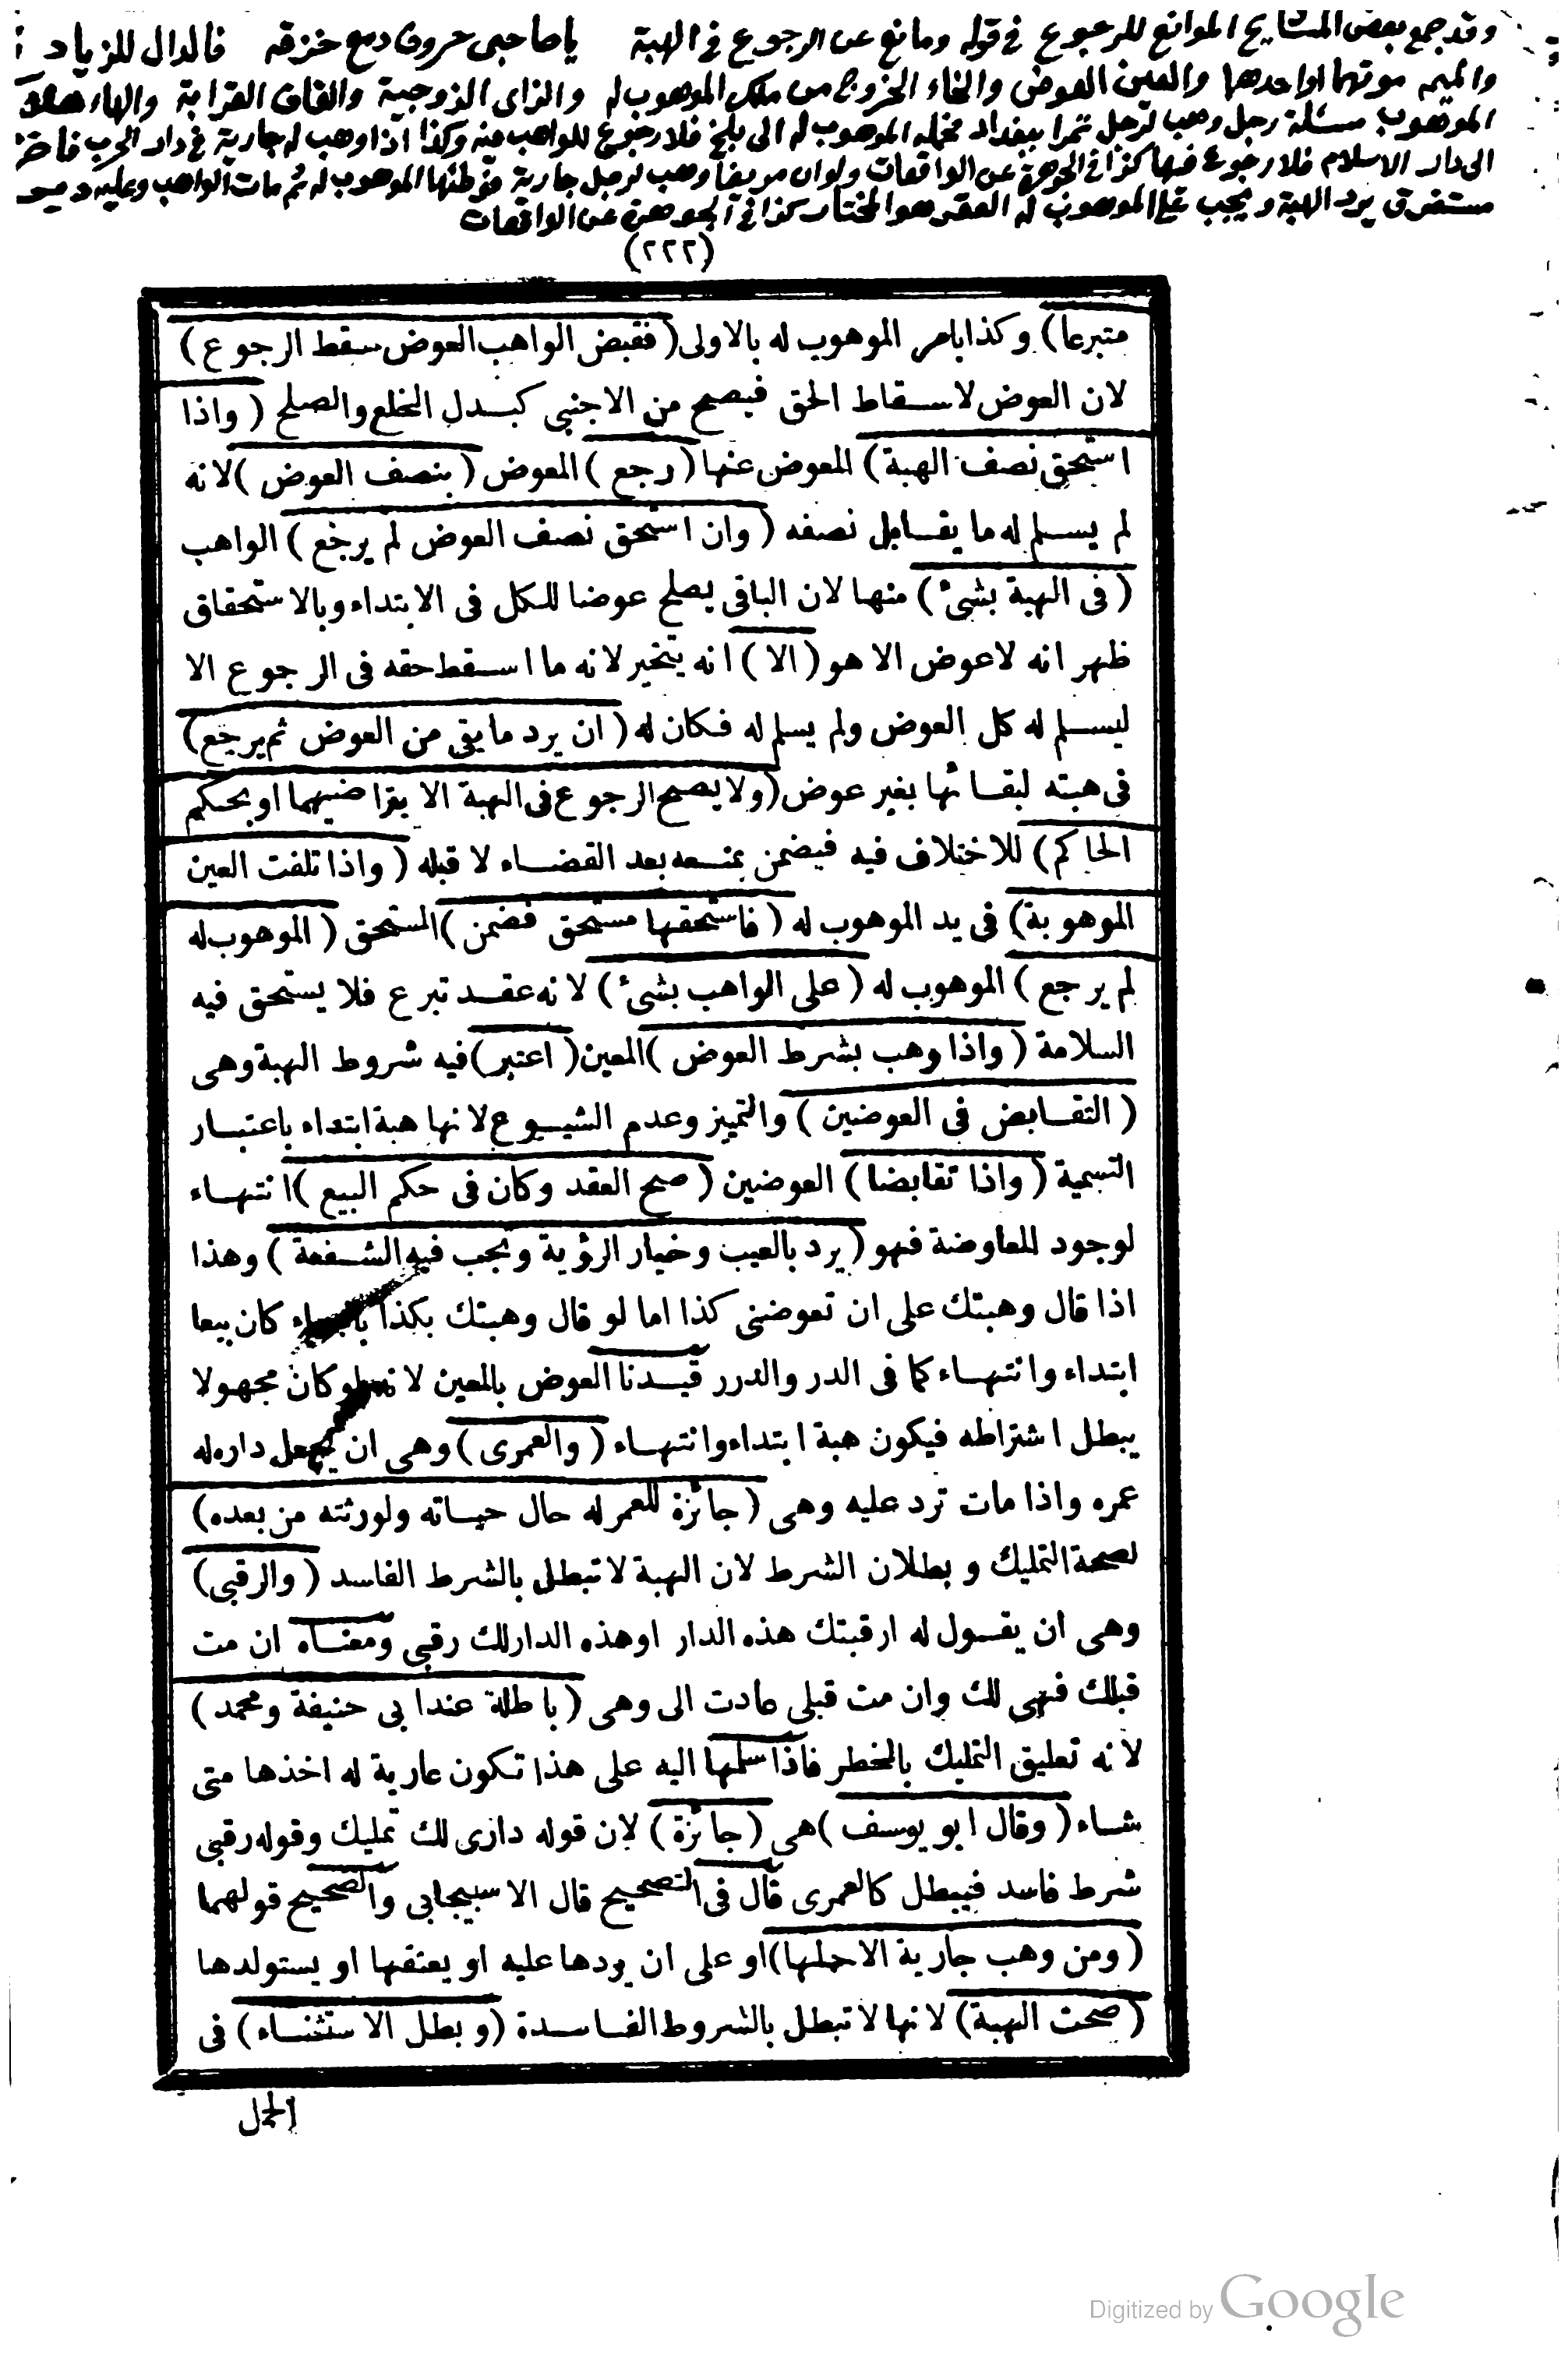 وقد جمع بعض المشايخ الموانع للرجوع في قوله ومانع عن الرجوع في الهبة يا صاحبي حروف دمع خزقه فالدال للزياد
والميم موتهما او احدهما والعين العوض والخاء الخروج من ملك الموهوب له والزاى الزوجية والقاف القرابة والهاء هلاك
الموهوب مسئلة رجل وهب لرجل تمرا ببغداد فحمله الموهوب له الى بلخ فلا رجوع للواهب فيه وكذا اذا وهب له جارية في دار الحرب
الى دار الاسلام فلا رجوع فيها كذا في الجوهرة عن الواقعات ولو ان مريضا وهب لرجل جارية فوطئها الموهوب له ثم مات الواهب وعليه دين
مستغرق يرد الهبة ويجب على الموهوب له العقر هو المختار كذا في الجوهرة عن الواقعات
(٢٢٢)
متبرعا) وكذا بامر الموهوب له بالاولى (فقبض الواهب العوض سقط الرجوع)
لان العوض لاسقاط الحق فيصح من الاجنبى كبدل الخلع والصلح (واذا
استحق نصف الهبة) المعوض عنها (رجع) المعوض (بنصف العوض) لانه
لم يسلم له ما يقابل نصفه (وان استحق نصف العوض لم يرجع) الواهب
(فى الهبة بشئ) منها لان الباقى يصلح عوضا للكل فى الابتداء وبالاستحقاق
ظهر انه لا عوض الا هو (الا) انه يتخير لانه ما اسقط حقه فى الرجوع الا
ليسلم له كل العوض ولم يسلم له فكان له (ان يرد ما بقى من العوض ثم يرجع)
فى هبته لبقائها بغير عوض (ولا يصح الرجوع فى الهبة الا بتراضيهما او بحكم
الحاكم) للاختلاف فيه فيضمن بمنعه بعد القضاء لا قبله (واذا تلفت العين
الموهوبة) فى يد الموهوب له (فاستحقها مستحق فضمن) المستحق (الموهوب له
لم يرجع) الموهوب له (على الواهب بشئ) لانه عقد تبرع فلا يستحق فيه
السلامة (واذا وهب بشرط العوض) المعين (اعتبر) فيه شروط الهبة وهى
(التقابض فى العوضين) والتميز وعدم الشيوع لانها هبة ابتداء باعتبار
التسمية (واذا تقابضا) العوضين (صح العقد وكان فى حكم البيع) انتهاء
لوجود المعاوضة فهو (يرد بالعيب وخيار الرؤية وتجب فيه الشفعة) وهذا
اذا قال وهبتك على ان تعوضنى كذا اما لو قال وهبتك بكذا بالباء كان بيعا
ابتداء وانتهاء كما فى الدر والدرر قيدنا العوض بالمعين لانه لو كان مجهولا
يبطل اشتراطه فيكون هبة ابتداء وانتهاء (والعمرى) وهى ان يجعل داره له
عمره واذا مات ترد عليه وهى (جائزة للعمر له حال حياته ولورثته من بعده)
لصحة التمليك وبطلان الشرط لان الهبة لا تبطل بالشرط الفاسد (والرقبى)
وهى ان يقول له ارقبتك هذه الدار او هذه الدار لك رقبى ومعناه ان مت
قبلك فهى لك وان مت قبلى عادت الى وهى (باطلة عند ابى حنيفة ومحمد)
لانه تعليق التمليك بالخطر فاذا سلمها اليه على هذا تكون عارية له اخذها متى
شاء (وقال ابو يوسف) هى (جائزة) لان قوله دارى لك تمليك وقوله رقبى
شرط فاسد فيبطل كالعمرى قال فى التصحيح قال الاسبيجابى والصحيح قولهما
(ومن وهب جارية الا حملها) او على ان يردها عليه او يعتقها او يستولدها
(صحت الهبة) لانها لا تبطل بالشروط الفاسدة (وبطل الاستثناء) فى
الحمل
Digitized by Google